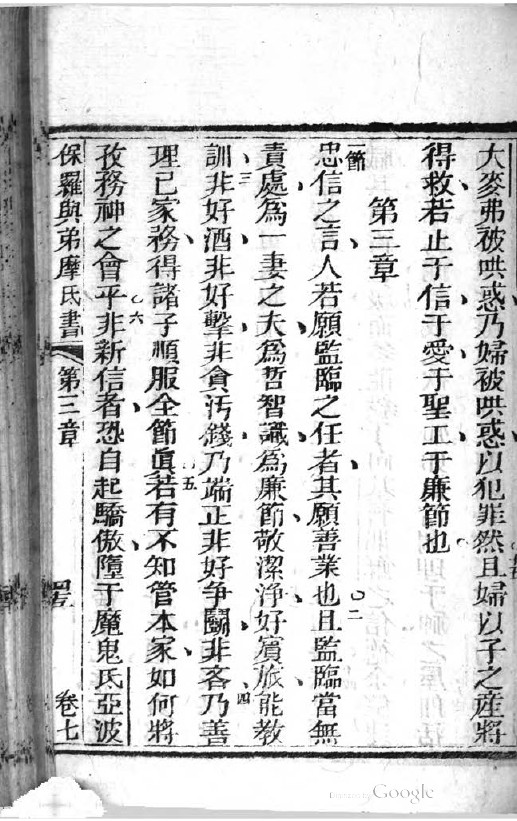 大麥弗被哄惑乃婦被哄惑以犯罪然且婦以子之產將
得救若止于信于愛于聖工于廉節也
第三章
節忠信之言人若願監臨之任者其願善業也○二且監臨當無
責處為一妻之夫為哲智識為廉節敬潔淨好賓旅能教
三訓非好酒非好擊非貪污錢乃端正非好爭鬬非吝四乃善
理己家務得諸子順服全節眞五若有不知管本家如何將
孜務神之會乎六非新信者恐自起驕傲墮于魔鬼氏亞波
保羅與弟摩氏書 第三章 卷七
Digitized by Google